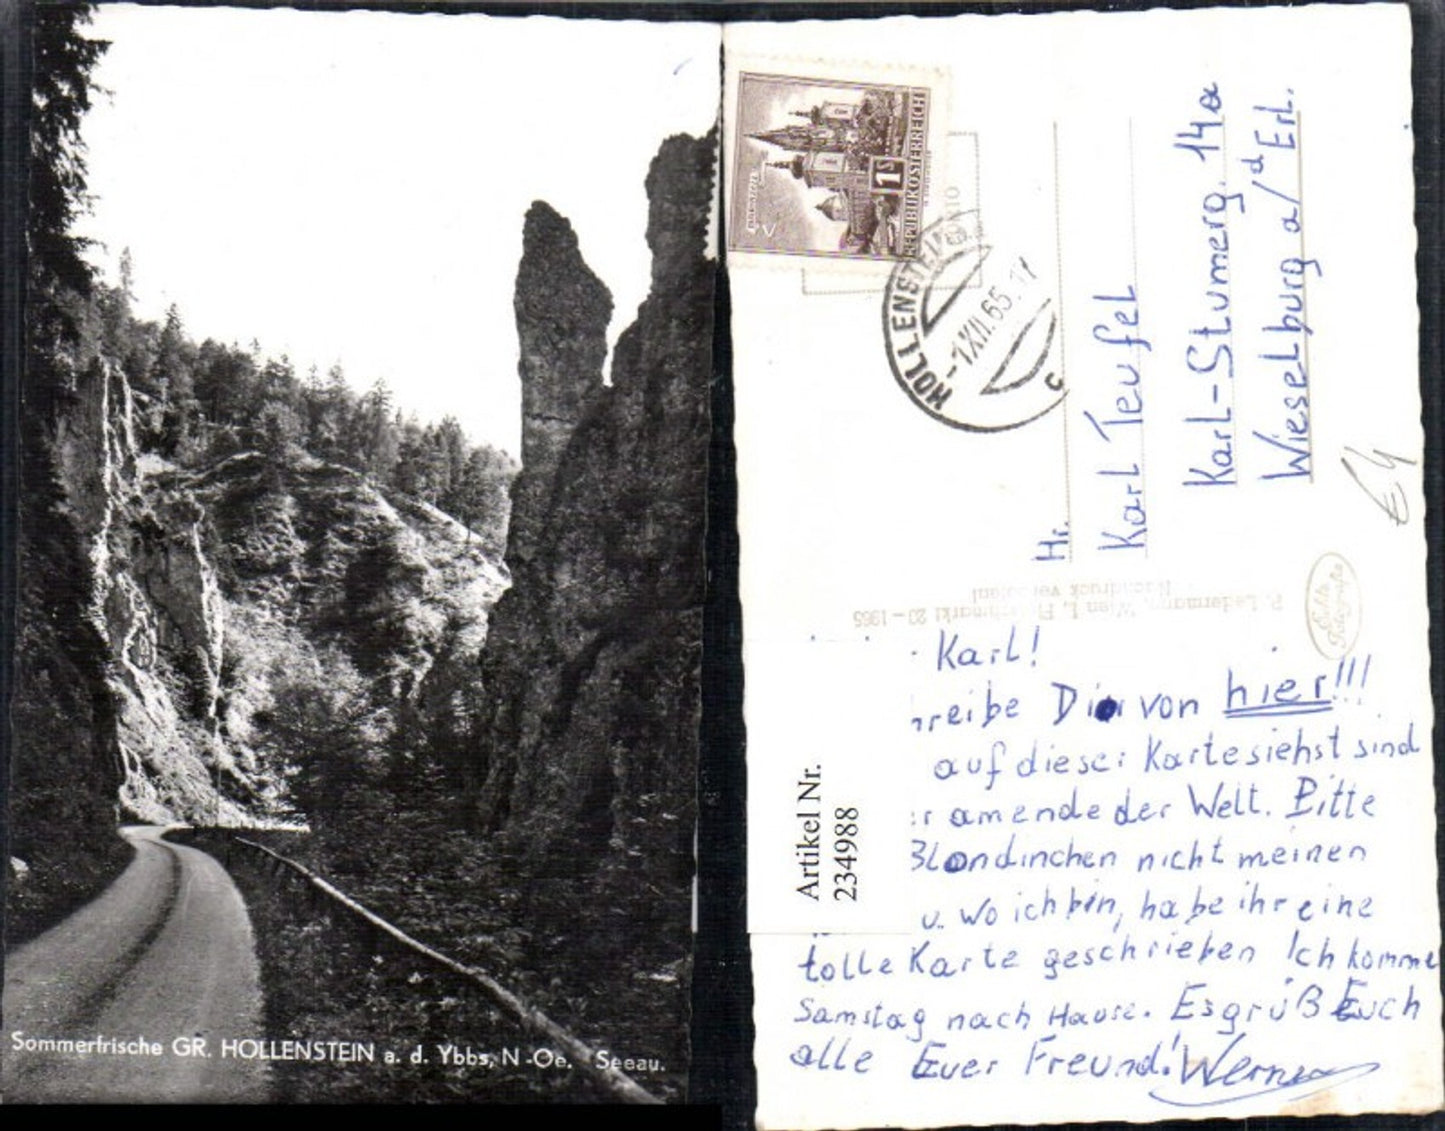 Sommerfrische GR. HOLLENSTEIN a. d. Ybbs, N.-Oe. Seeau.
1S
REPUBLIK ÖSTERREICH
HOLLENSTEIN
-1.XII.65.
c
Hr.
Karl Teufel
Karl-Stumerg. 14a
Wieselburg a/d Erl.
P. Ledermann, Wien I, Fleischmarkt 20 – 1965
Nachdruck verboten!
Echte
Fotografie
Artikel Nr.
234988
Karl!
reibe Dir von hier!!!
auf dieser Karte siehst sind
r am ende der Welt. Bitte
Blondinchen nicht meinen
u. wo ich bin, habe ihr eine
tolle Karte geschrieben Ich komme
Samstag nach Hause. Es grüß Euch
alle Euer Freund! Werner